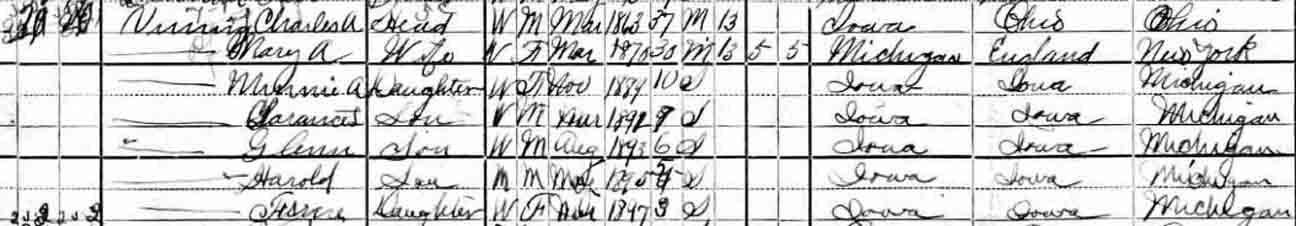 Charles A Head W M Mar 1863 37 M 13 Iowa Ohio Ohio
Mary A Wife W F Mar 1870 30 M 13 5 5 Michigan England New York
Minnie A Daughter W F Nov 1889 10 S Iowa Iowa Michigan
Son W M 189 S Iowa Iowa Michigan
Glenn Son W M Aug 1893 6 S Iowa Iowa Michigan
Harold Son M M 1895 S Iowa Iowa Michigan
Daughter W F 1897 3 S Iowa Iowa Michigan